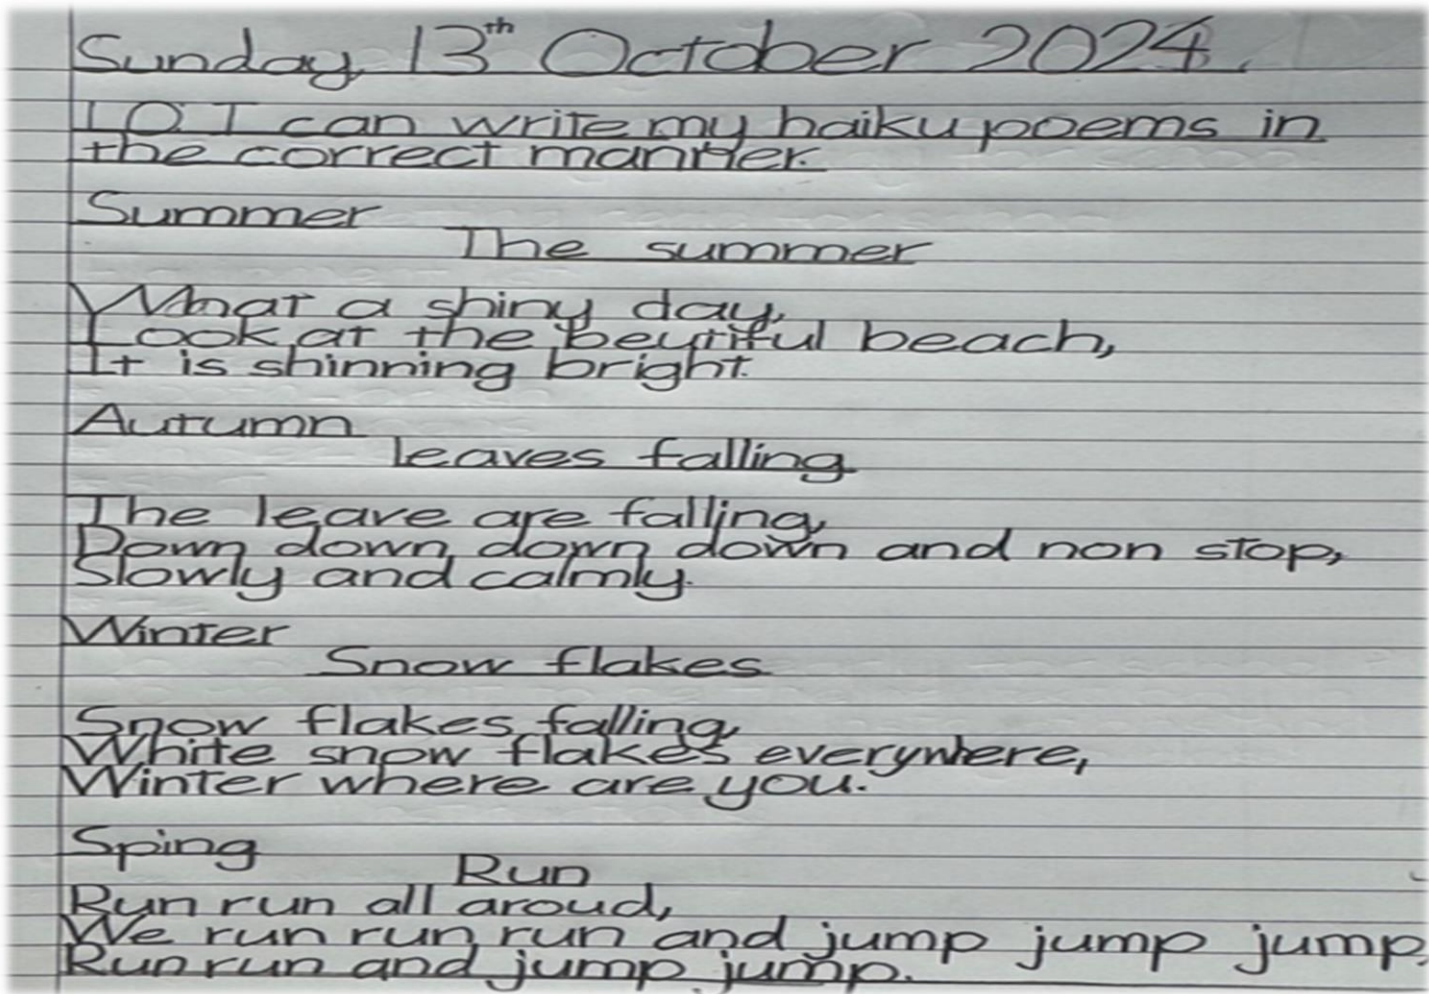 Sunday 13th October 2024.
LO I can write my haiku poems in
the correct manner.
Summer
The summer
What a shiny day,
Look at the beytiful beach,
It is shinning bright.
Autumn
leaves falling
The leave are falling,
Down down, down down and non stop,
Slowly and calmly.
Winter
Snow flakes
Snow flakes falling,
White snow flakes everywhere,
Winter where are you.
Sping
Run
Run run all aroud,
We run run, run and jump jump jump,
Run run and jump jump.